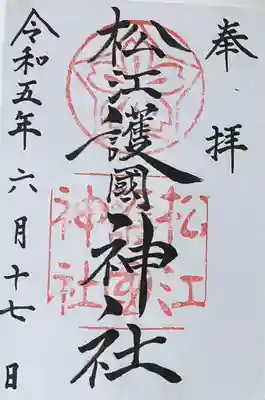 奉拝
松江護國神社
令和五年六月十七日
松江
護國
神社